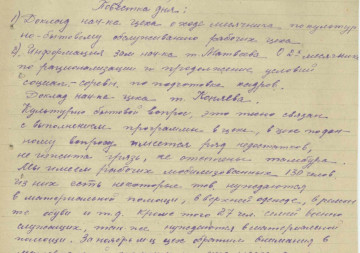 Повестка дня:
1) Доклад нач-ка цеха о ходе месячника по культур
но-бытовому обслуживанию рабочих цеха
2) Информация зам. нач-ка т. Матвеева О 2х месячнике
по рационализации и продолжение условий
социал-соревн, по подготовке кадров.
Доклад нач-ка цеха т. Конлева.
Культурно бытовой вопрос, это тесно связан
с выполнением программы в цехе, в цехе по дан-
ному вопросу имеется ряд недостатков,
грязь, не отеплены тамбура.
Мы имеем рабочих мобилизованных 130 челов.
Из них есть некоторые тов. нуждаются
в материальной помощи, в верхней одежде, в ремон
те обуви и т.д. Кроме того 27 чел. семей военно
служащих, так же нуждаются в материальной
помощи. За поверш. цех обратил внимания в